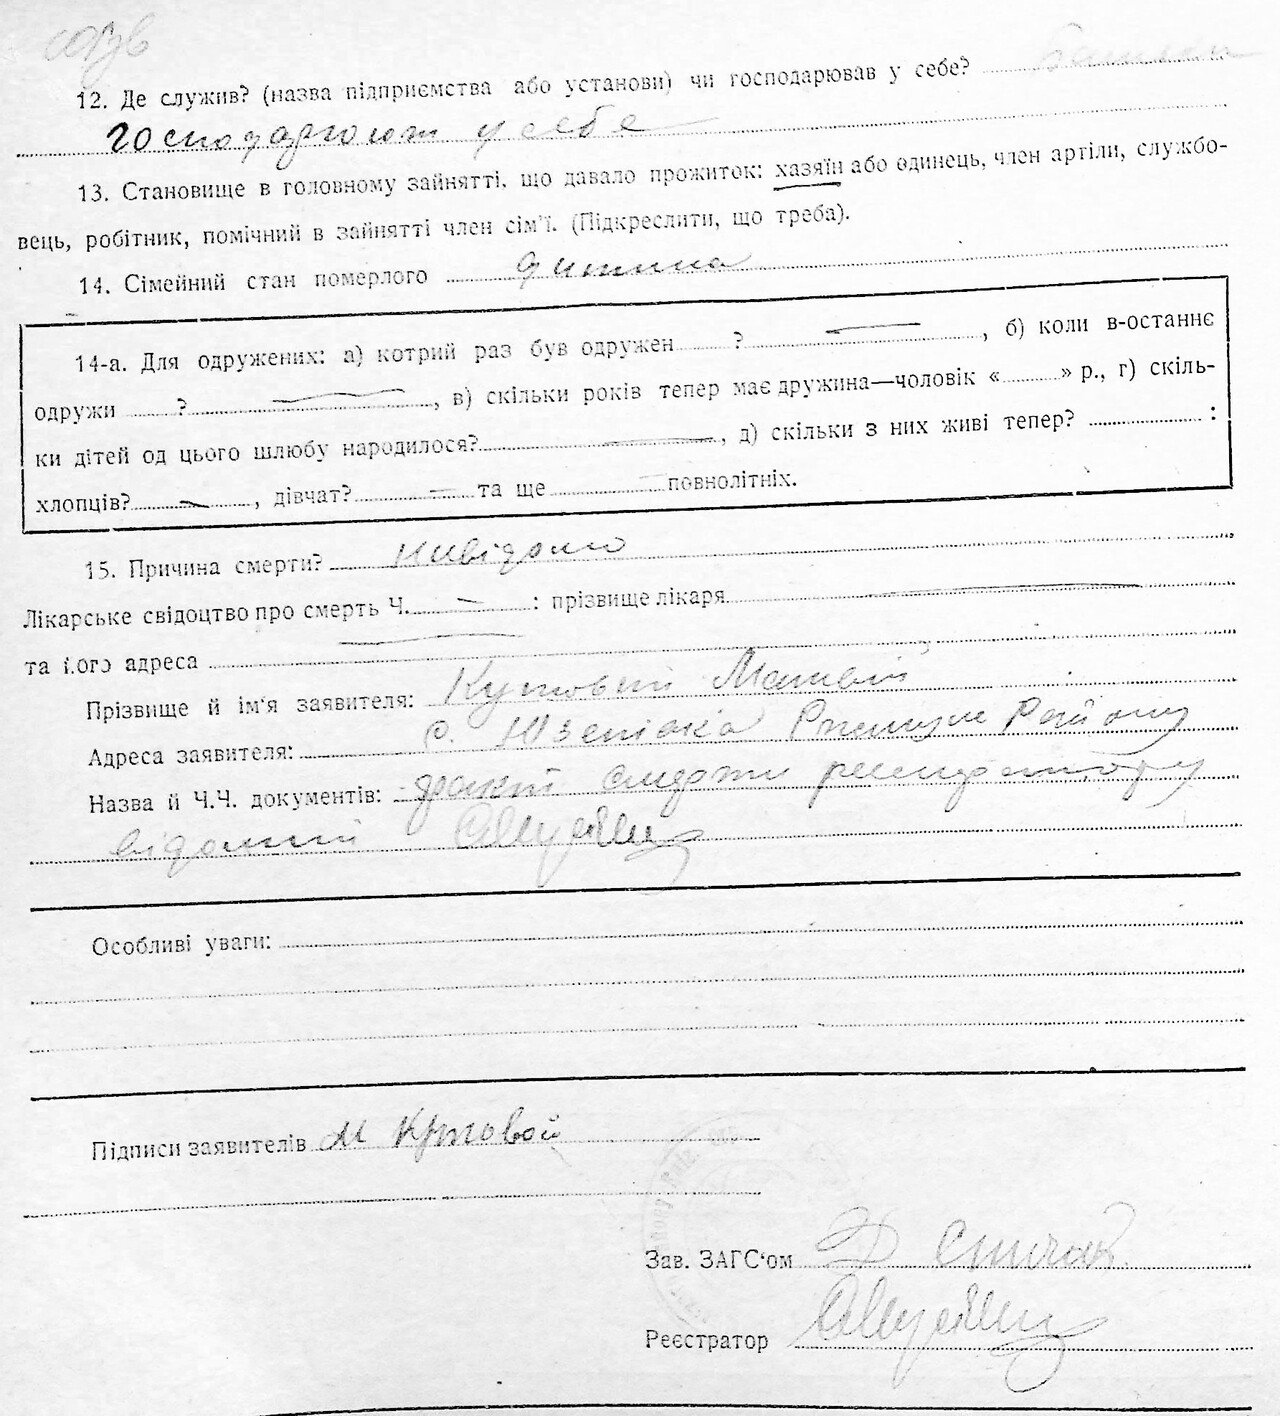 12. Де служив? (назва підприємства або установи) чи господарював у себе? Батьки
господарюют у себе
13. Становище в головному зайнятті, що давало прожиток: хазяїн або одинець, член артіли, службо-
вець, робітник, помічний в зайнятті член сім'ї. (Підкреслити, що треба).
14. Сімейний стан померлого дитина
14-а. Для одружених: а) котрий раз був одружен ? — , б) коли в-останнє
одружи ? — , в) скільки років тепер має дружина—чоловік « » р., г) скіль-
ки дітей од цього шлюбу народилося? — , д) скільки з них живі тепер? :
хлопців? — , дівчат? — та ще — повнолітніх.
15. Причина смерти? нивідомо
Лікарське свідоцтво про смерть Ч. — : прізвище лікаря —
та його адреса —
Прізвище й ім'я заявителя: Кутовий Матвій
Адреса заявителя: с. Району
Назва й Ч.Ч. документів: факт смерти
відомий
Особливі уваги:
Підписи заявителів М Кутовой
Зав. ЗАГС'ом
Реєстратор